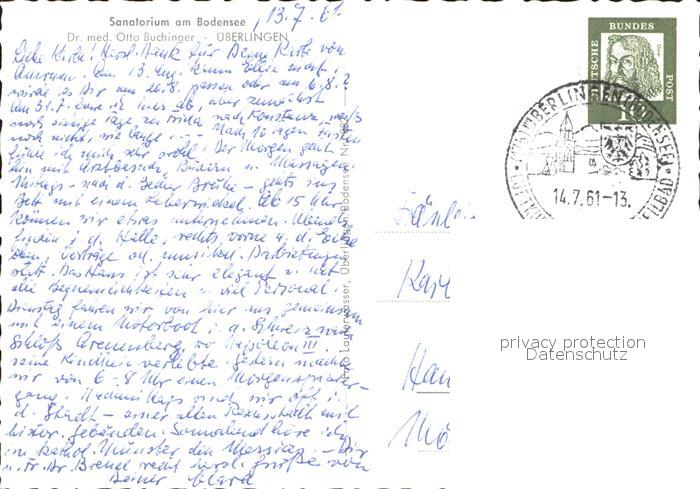 Sanatorium am Bodensee
Dr. med. Otto Buchinger · ÜBERLINGEN
13.7.61.
Liebe Karla! Herzl. Dank für Deine Karte von
am 13. Aug. kann nicht,
würde es Dir am 20.8. passen oder am 6.8.?
Am 31.7. hier ab, aber zunächst
noch einige Tage, zu nach Konstanz, weiß
noch nicht, wie lange. Nach 10 Tagen Fasten
fühle ich mich sehr wohl! Der Morgen geht
hin mit Arztbesuch, Bädern u. Massagen.
Mittags - nach d. Becher Brühe - gehts ins
Bett mit einem Leberwickel. Ab 15 Uhr
können wir etwas unternehmen. Abends
i. d. Halle, rechts vorne a. d. Ecke
oben, Vorträge od. musikal. Darbietungen
statt. Das Haus ist sehr elegant u. hat
alle Bequemlichkeiten u. viel Personal.
Dienstag fahren wir von hier aus gemeinsam
mit einem Motorboot i. d. Schweiz nach
Schloß Arenenberg, wo Napoleon III.
seine Kindheit verlebte. Gestern machten
wir von 6-8 Uhr einen Morgenspazier-
gang. Nachmittags sind wir oft i.
d. Stadt - einer alten Reichsstadt mit
histor. Gebäuden. Sonnabend höre ich
im kathol. Münster den Messias. Dir
u. Fr. Dr. Brenel recht herzl. Grüße von
Deiner Clara
Lauterwasser, Überlingen/Bodensee Nr.
DEUTSCHE
BUNDES
POST
Dürer
10
ÜBERLINGEN (BODENSEE)
14.7.61-13.
HEILBAD
Fräulein
Kar
Han
Mö
privacy protection
Datenschutz